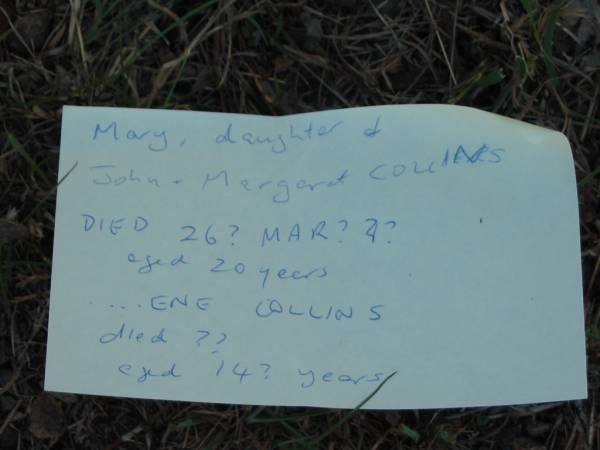 Mary, daughter of
John + Margaret COLLINS
DIED 26? MAR? ??
aged 20 years
....ENE COLLINS
died ??
aged 14? years